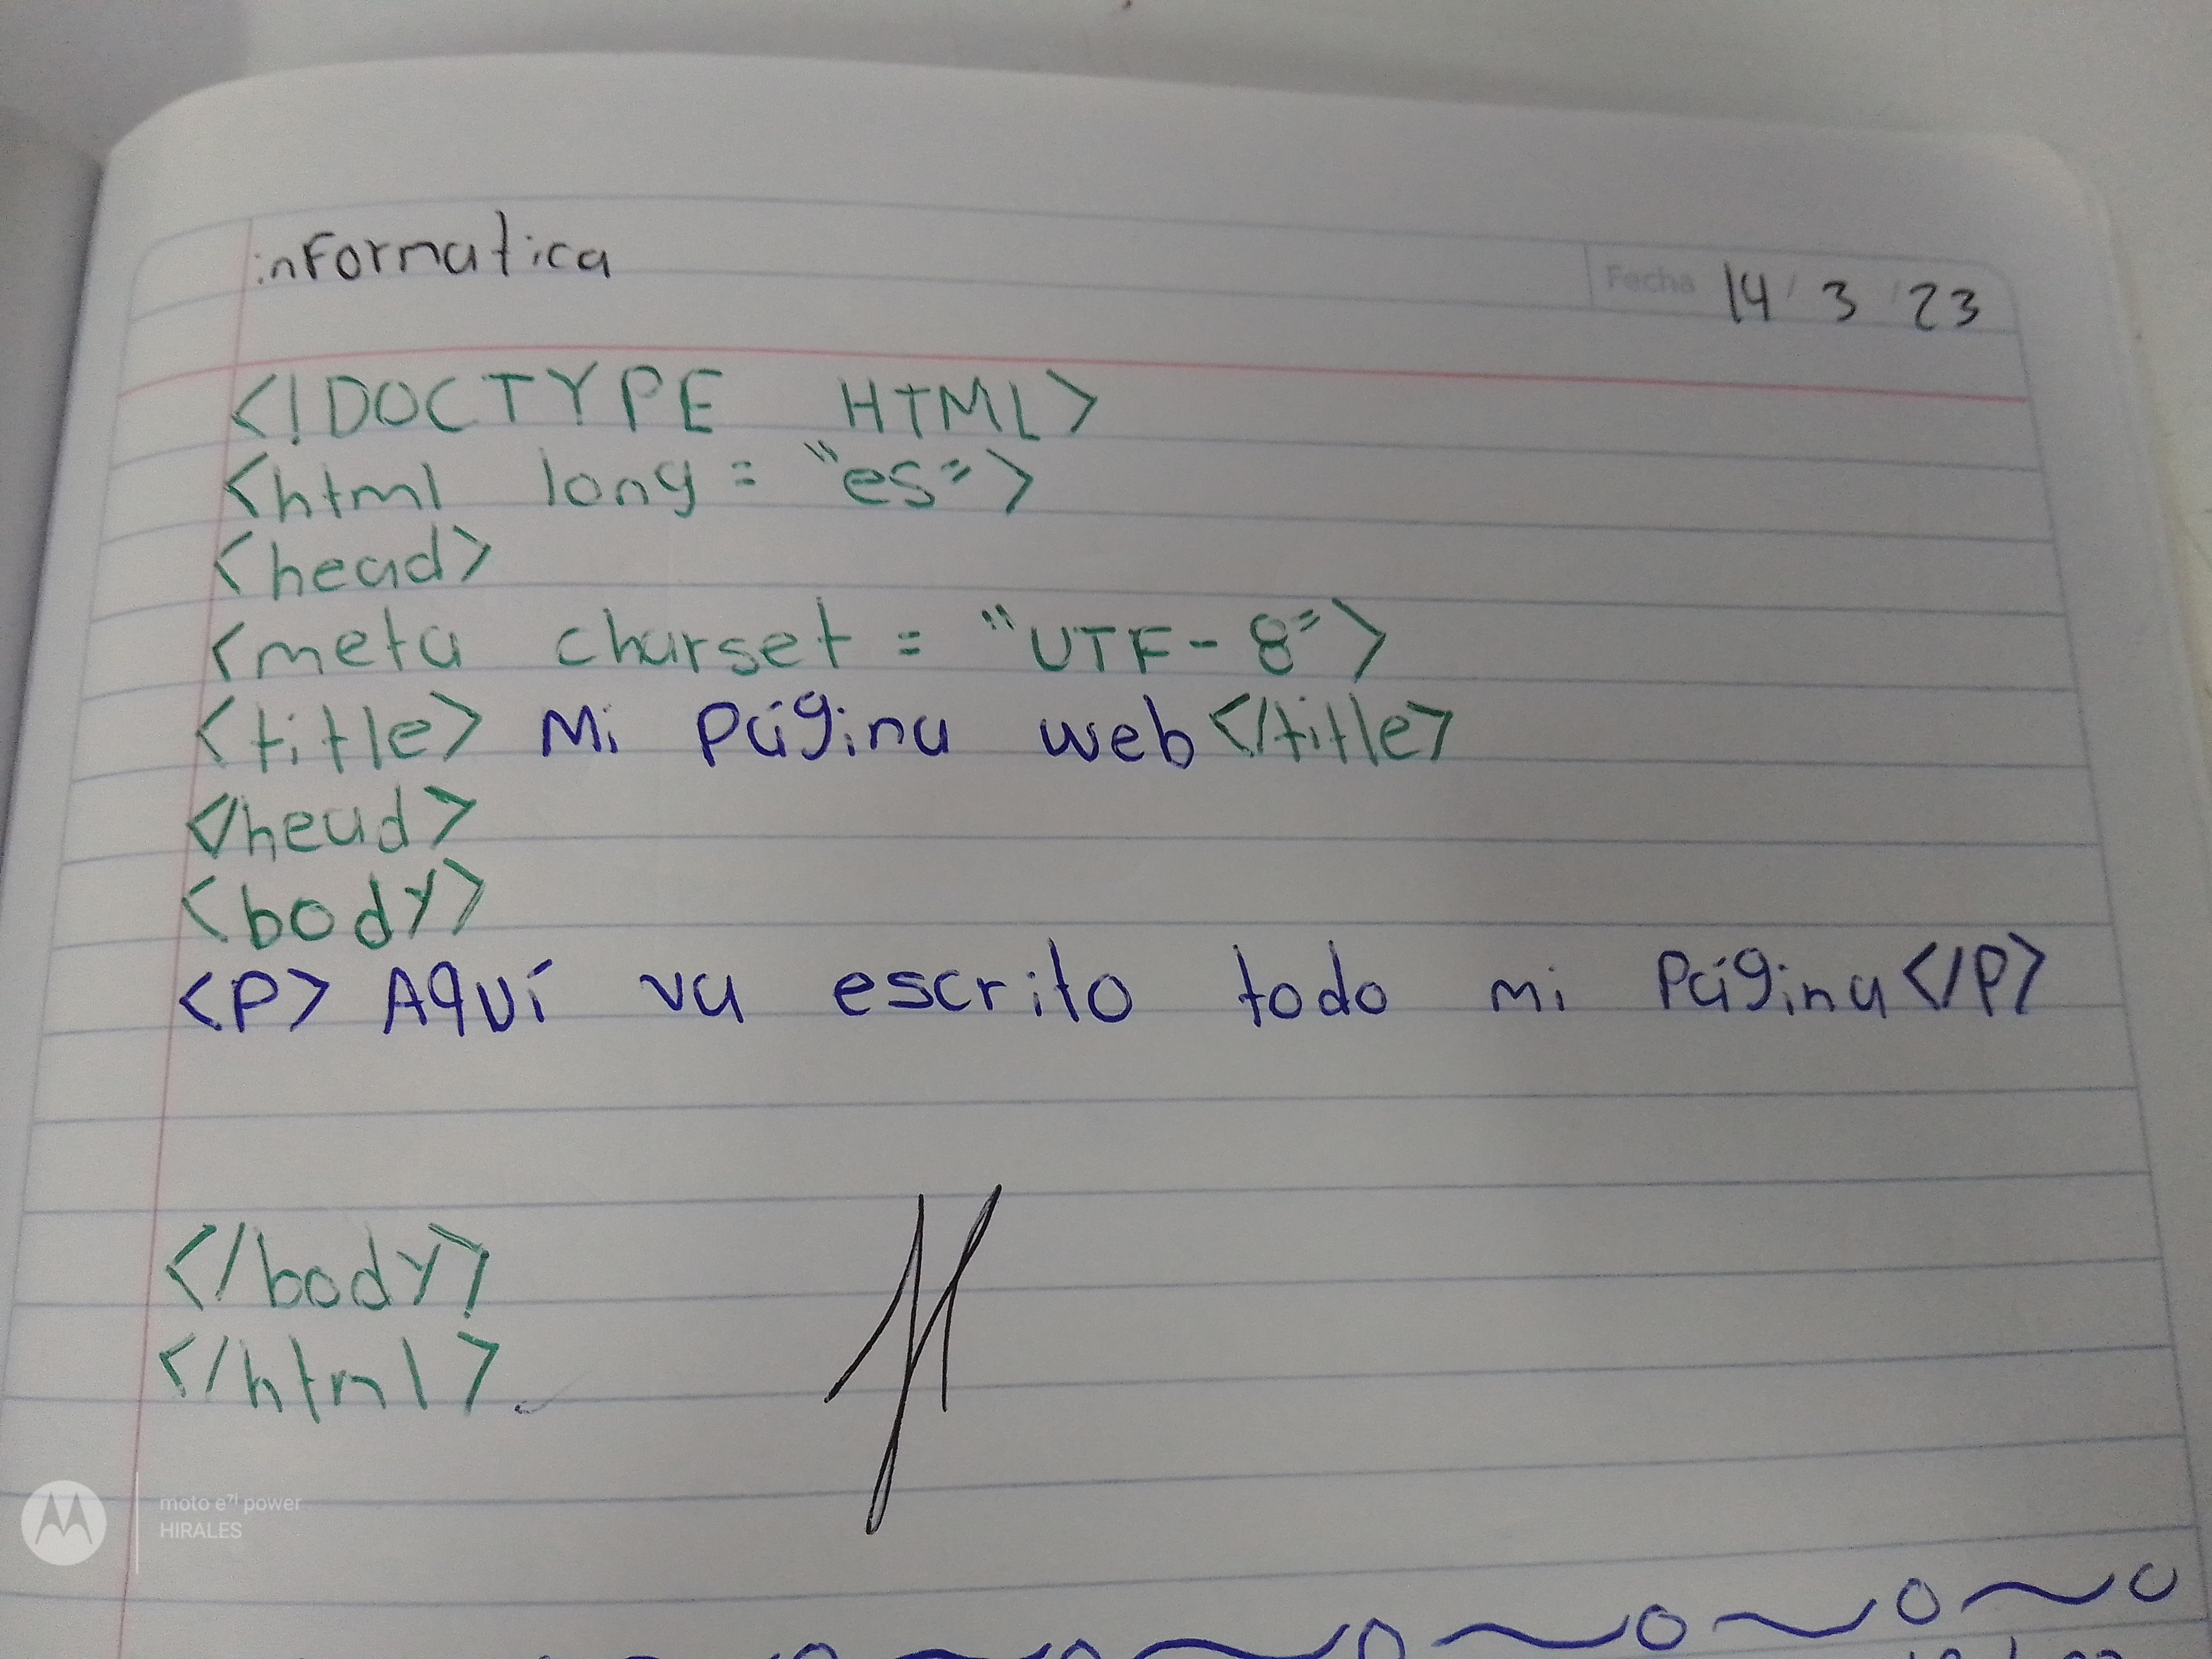 informatica
Fecha 14 / 3 / 23
<!DOCTYPE HTML>
<html long = "es">
<head>
<meta charset = "UTF-8">
<title> Mi Página web</title>
</head>
<body>
<P> Aquí va escrito todo mi Página</P>
</body>
</html>
moto e⁷ⁱ power
HIRALES